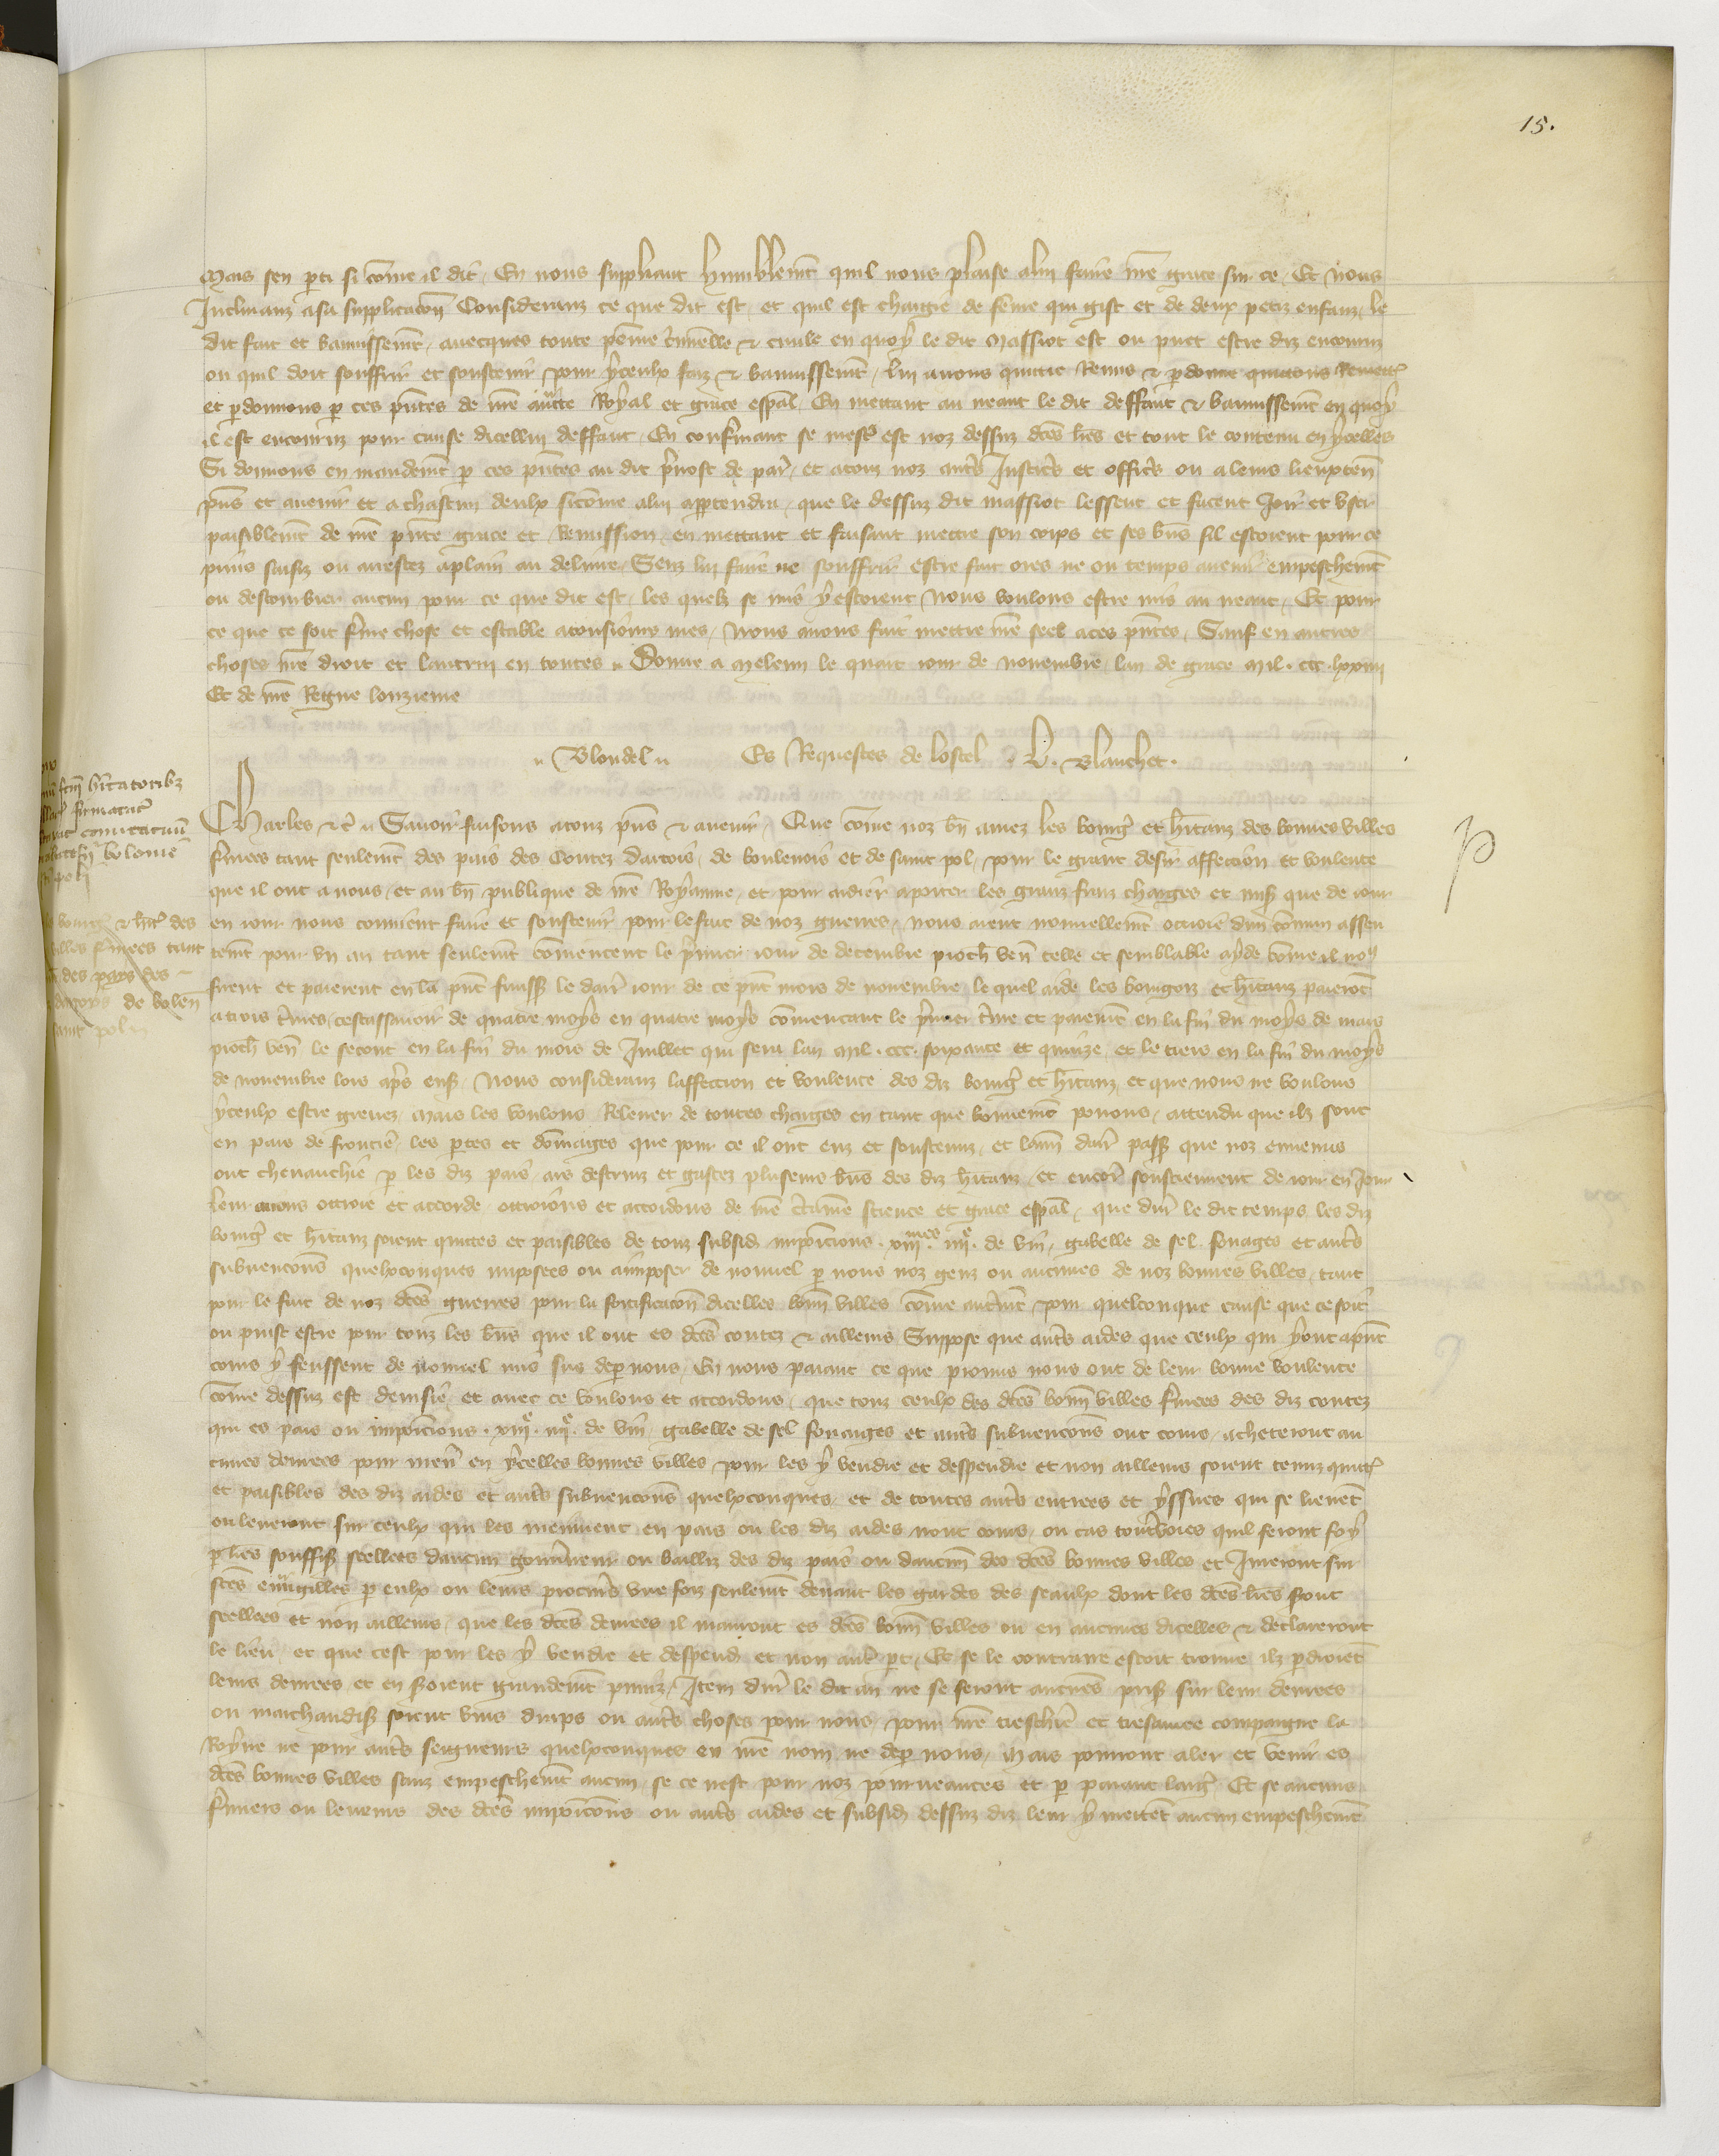 15.
Mais sen parti si cōme il dit. En nous suppliant humblemt quil nous plaise alui faire nre grace sur ce. Et nous
Inclinanz asa supplicacon Consideranz ce que dit est, et quil est chargie de feme qui gist et de deux petiz enfanz, le
dit fait et bannissemt, avecques toute peine criminelle & civile en quoy le dit Massiot est ou puet estre diz encouru
ou quil doit souffrir et soustenir pour yceulx faiz & bannissemt, lui avons quittie Remis & pdonne quittons Remett
et pdonnons p ces pntes de nre auctte Royal et grace espal, En mettant au neant le dit deffaut & bannissemt en quoy
il est encouruz pour cause dicellui deffaut, En confirmant se mest est noz dessuz dces lres et tout le contenu en ycelles
Si donnons en mandemt p ces pntes au dit prevost de par, et atouz noz autrs Justicrs et officrs ou aleurs lieuxten
pns et avenir et achascun deulx sicome alui apptendra, que le dessuz dit Massiot lessent et facent Jouir et user
paisiblemt de nre pnte grace et Remission, en mettant et faisant mettre son corps et ses bns sil estoient pour ce
prins saisiz ou arrestez aplain au delivre, Senz lui faire ne souffrir estre fait ores ne ou temps avenir empeschemt
ou destourbier aucun pour ce que dit est, les quelz se mis y estoient Nous voulons estre mis au neant, Et pour
ce que ce soit ferme chose et estable atousiours mes, Nous avons fait mettre nre seel aces pntes, Sauf en autres
choses nre droit et lautrui en toutes. Donne a Meleun le quart iour de novembre lan de grace Mil. ccc. lxxiiij
Et de nre Regne lonzieme
Blondel Es Requestes de lostel L. Blanchet.
Charles &c Savoir faisons atouz pns & avenir, Que cōme noz bn amez les bourg et hitanz des bonnes villes
fermees tant seulemt des pais des Contez dartois, de boulenois et de saint pol, pour le grant desir affeccion et voulente
que il ont anous, et au bn publique de nre Royaume, et pour aidier aporter les granz fraiz charges et mises que de iour
en iour nous convient faire et soustenir pour lefait de noz guerres, nous aient nouvellemt octroie dun comun assen
temt pour un an tant seulemt comencent le premier iour de decembre proch ven telle et semblable ayde come il nous
firent et paierent en la pnt finisse le darr iour de ce pnt mois de novembre, le quel aide les bourgois et hitanz paieront
atrois termes, cestassavoir de quatre moys en quatre moys comencant le premier terme et paiemt en la fin du moys de mars
proch ven le secont en la fin du mois de Juillet qui sera lan mil. ccc. soixante et quinze, et le tiers en la fin du moys
de novembre lors aps ens, Nous consideranz laffeccion et voulente des diz bourg et hitanz, et que nous ne voulons
yceulx estre grevez, Mais les voulons Relever de toutes charges en tant que bonnemt povons, attendu que ilz sont
en pais de frontie, les ptes et domages que pour ce il ont euz et soustenuz, et lann darr passe que noz ennemis
ont chevauchie p les diz pais ars destruiz et gastez pluseurs bns des diz hitanz, et encor soustiennent de iour en Jour
leur avons ottroie et accorde, ottroions et accordons de nre certaine science et grace espal, que dur le dit temps les diz
bourg et hitanz soient quictes et paisibles de touz subsid imposicions. xiijmes iiije de vin, gabelle de sel fouages et autrs
subvencions quelxconques imposees ou aimposer de nouvel p nous noz genz ou aucunes de noz bonnes villes, tant
pour le fait de noz dces guerres pour la fortificacon dicelles bonn villes come autremt pour quelconque cause que ce soit
ou puist estre pour touz les bns que il ont es dces contez & ailleurs, Suppose que autrs aides que ceulx qui y ont apnt
cours y feussent de nouvel mis sus depar nous, En nous paiant ce que promis nous ont de leur bonne voulente
come dessuz est devisie, et avec ce voulons et accordons, que touz ceulx des dces bonn villes fermees des diz contez
qui es pais ou imposicions. xiije. iiije. de vin gabelle de sel fouaiges et autrs subvencions ont cours, acheteront au
cunes denrees pour men en ycelles bonnes villes, pour les y vendre et despendre et non ailleurs soient tenuz quict
et paisibles des diz aides et autrs subvencions quelxconques, et de toutes autrs entrees et yssues qui se lievent
ou leveront sur ceulx qui les menront en pais ou les diz aides nont cours, ou cas toutevoies quil feront foy
p lres souffis seellees daucun gouverneur ou bailliz des diz pais ou daucun des dces bonnes villes et Jureront sur
stes euvangilles p eulx ou leurs procurs une foiz seulemt devant les gardes des seaulx dont les dces lres seront
seellees et non ailleurs, que les dces denrees il menront es dces bonn villes ou en aucunes dicelles & declareront
le lieu, et que cest pour les y vendre et despend et non autre pt, Et se le contraire estoit trouve ilz pdroient
leurs denrees et en seroient grandemt puniz, Item dur le dit an ne se feront aucunes prises sur leur denrees
ou marchandises soient vins draps ou autrs choses pour nous, pour nre treschie et tresamee compaigne la
Royne ne pour autrs seigneurs quelxconques en nre nom ne depar nous, Mais pourront aler et venir es
dces bonnes villes sanz empeschemt aucun, se ce nest pour noz pourveances et p paiant larg Et se aucuns
fermiers ou leveurs des dces imposicions ou autrs aides et subsid dessuz diz leur y meitent aucun empeschemt
bourg & hit des
villes fermees tant
des pays des
dartoys de bolen
saint pol